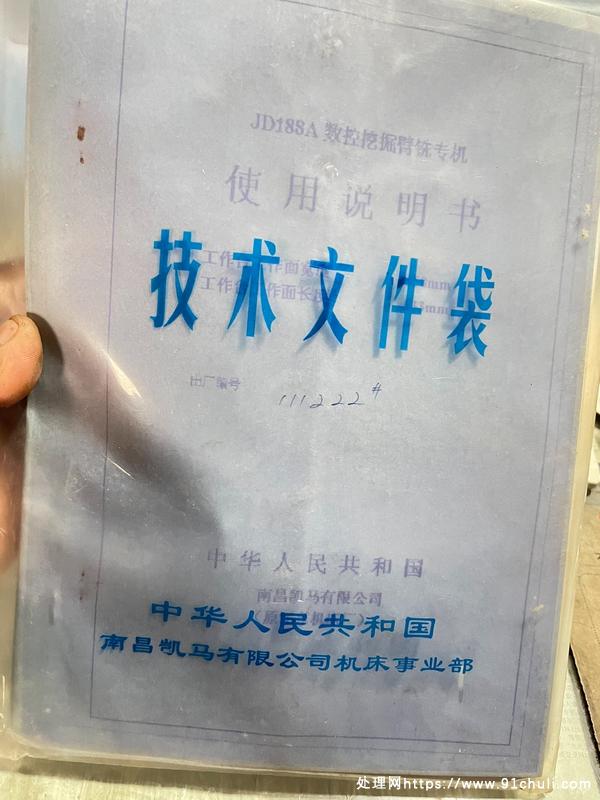 JD188A 数控挖掘臂铣专机
使用说明书
技术文件袋
工作台工作面宽度 mm
工作台工作面长度 mm
出厂编号 111222#
中华人民共和国
南昌凯马有限公司
中华人民共和国
南昌凯马有限公司机床事业部
处理网https://www.91chuli.com/